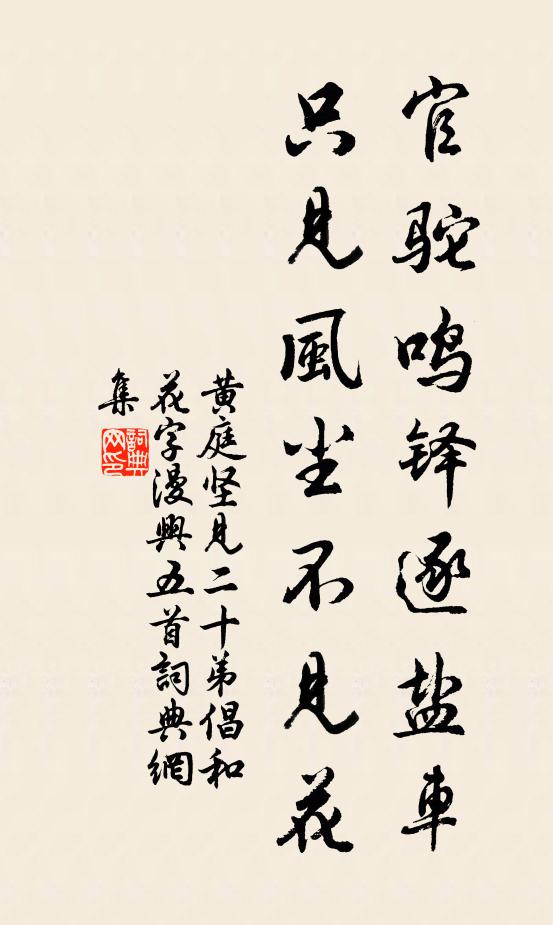 官驼鸣铎逐盐車
只见風尘不见花
黄庭坚见二十弟倡和
花字漫興五首詞典網
集
詞典
网印